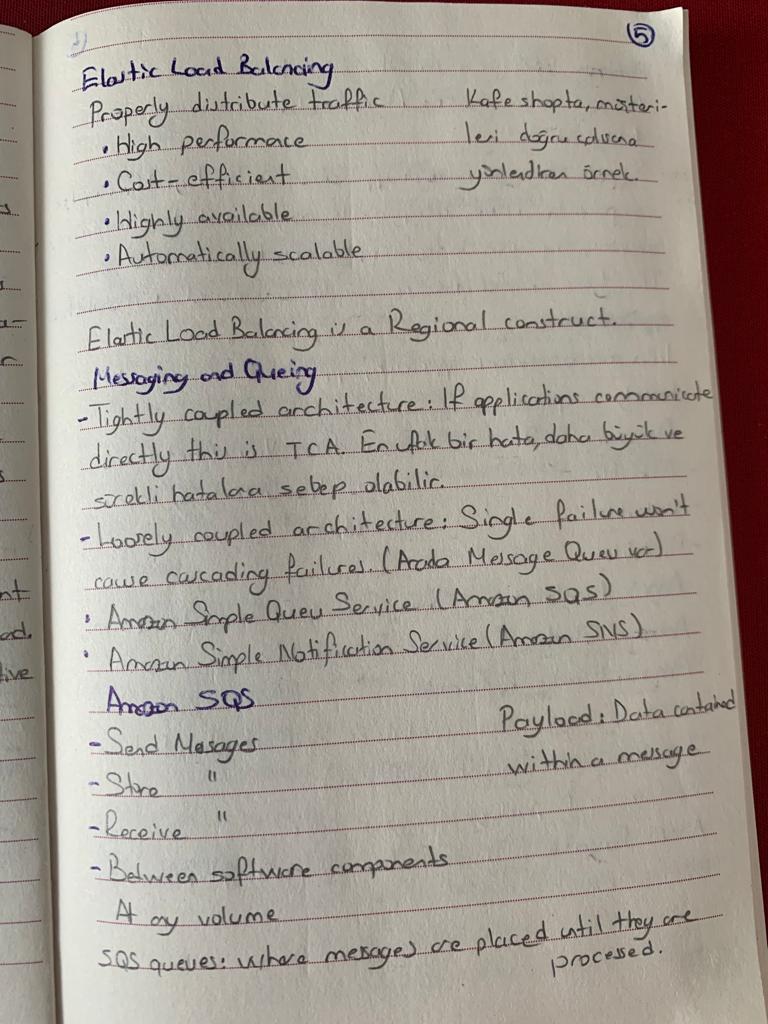 5
Elastic Load Balancing
Properly distribute traffic
• High performace
• Cost-efficient
• Highly available
• Automatically scalable
Kafe shopta, müşteri-
leri doğru
yönlendiren örnek.
Elastic Load Balancing is a Regional construct.
Messaging and Queing
- Tightly coupled architecture: If applications communicate
directly this is TCA. En ufak bir hata, daha büyük ve
sürekli hatalara sebep olabilir.
- Loosely coupled architecture: Single failure won't
cause cascading failures. (Arada Message Queu var)
• Amazon Simple Queu Service (Amazon SQS)
• Amazon Simple Notification Service (Amazon SNS)
Amazon SQS
- Send Mesages
- Store "
- Receive "
- Between software components
At any volume
Payload: Data contained
within a message
SQS queues: Where mesages are placed until they are
processed.